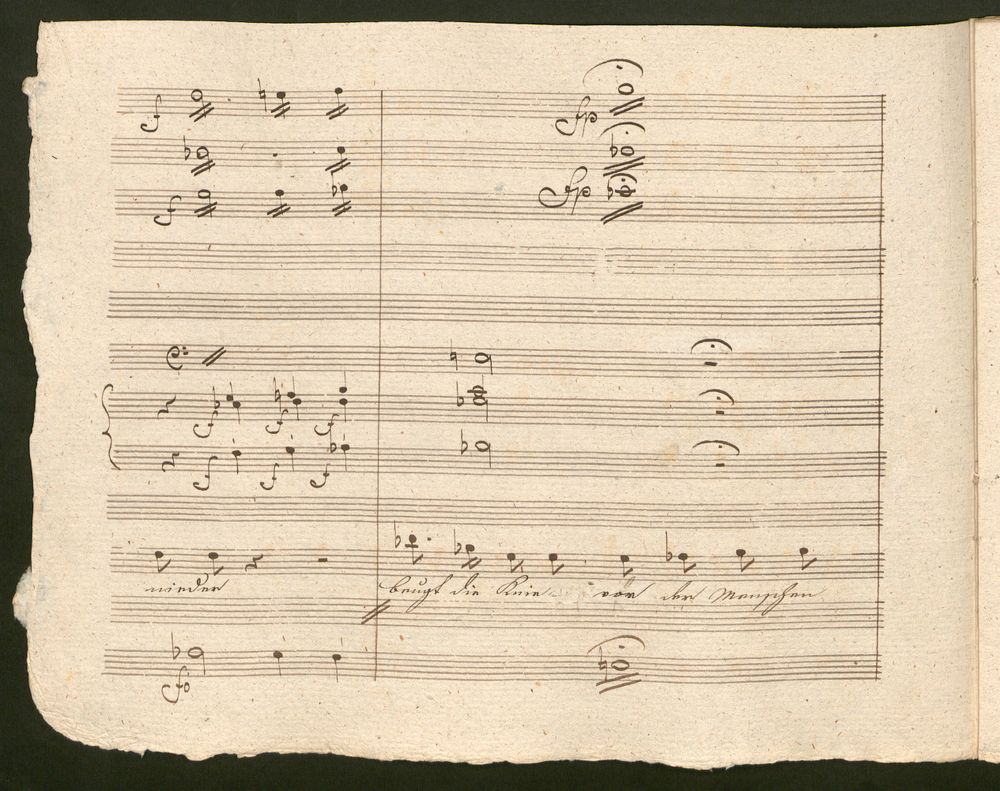 f
fp
f
fp
f f f
f f f
nieder beugt die Knie vor der Menschen
fo